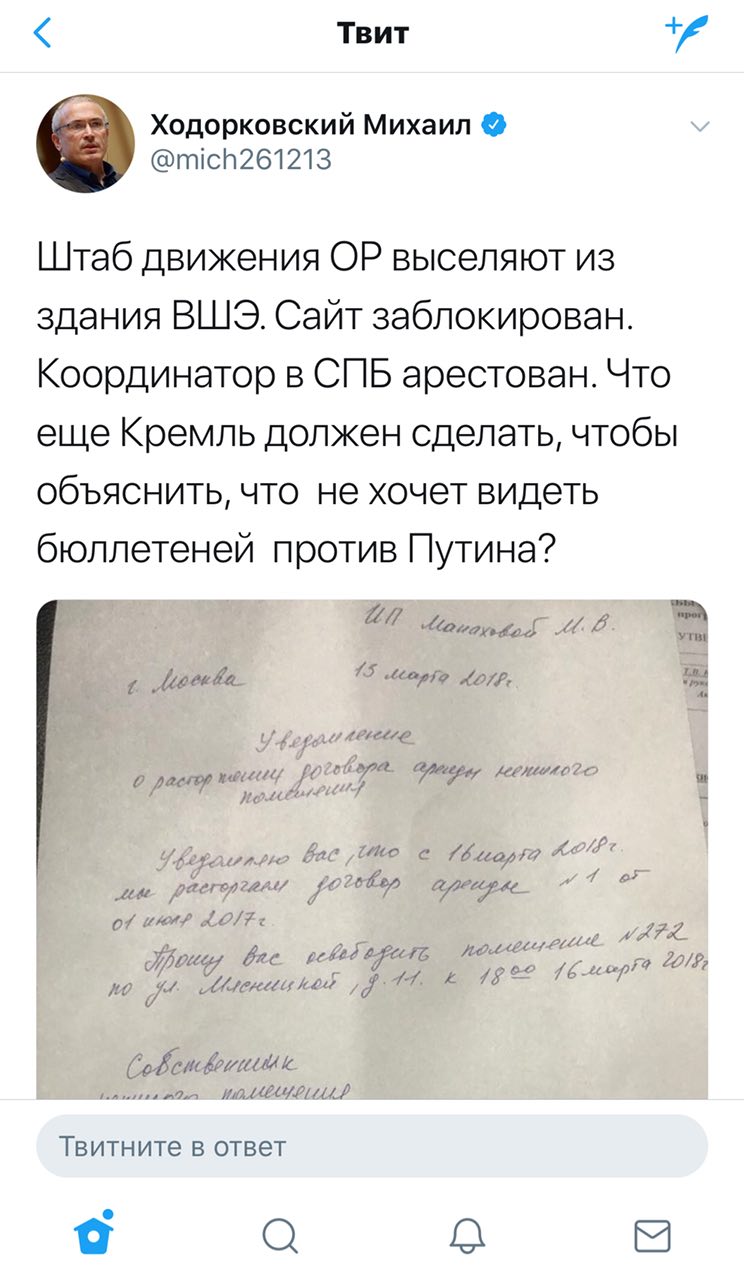 Твит
Ходорковский Михаил
@mich261213
Штаб движения ОР выселяют из
здания ВШЭ. Сайт заблокирован.
Координатор в СПБ арестован. Что
еще Кремль должен сделать, чтобы
объяснить, что не хочет видеть
бюллетеней против Путина?
ИП Манаховой М. В.
г. Москва 15 марта 2018г.
Уведомление
о расторжении договора аренды нежилого
помещения
Уведомляю Вас, что с 16 марта 2018г.
мы расторгаем договор аренды №1 от
01 июля 2017г
Прошу Вас освободить помещение №272
по ул. Мясницкой, д. 11. к 18 00 16 марта 2018г
Собственник
нежилого помещения
Твитните в ответ